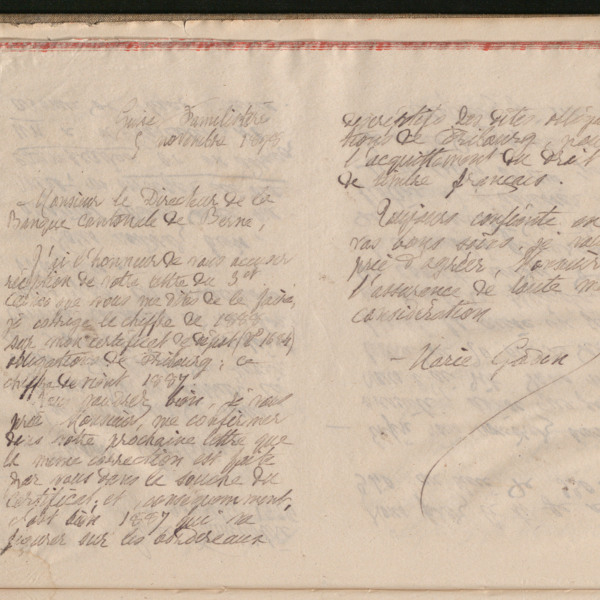 Guise Familistère
5 novembre 1898
Monsieur le Directeur de la
Banque Cantonale de Berne,
J'ai l'honneur de vous accuser
réception de votre lettre du 3 ct
que vous me dites de le faire,
je corrige le chiffre de 1898
sur mon certificat de dépôt
obligations de Fribourg; ce
chiffre devient 1887
Veuillez bien, je vous
prie Monsieur, me confirmer
dans votre prochaine lettre que
la même correction est faite
par vous dans la souche du
certificat, et conséquemment,
c'est bien 1887 qui va
figurer sur les bordereaux
des dites obliga
tions de Fribourg, pour
l'acquittement du droit
de timbre français.
Toujours confiante en
vos bons soins, je vous
prie d'agréer, Monsieur
l'assurance de toute ma
considération
Marie Godin